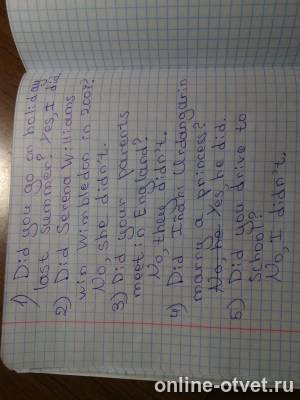 1) Did you go on holiday
last summer? Yes, I did
2) Did Serena Williams
win Wimbledon in 2007?
No, she didn't.
3) Did your parents
meet in England?
No, they didn't.
4) Did Inaki Urdangarin
marry a princes?
No, he Yes, he did.
5) Did you drive to
School?
No, I didn't.
online-otvet.ru